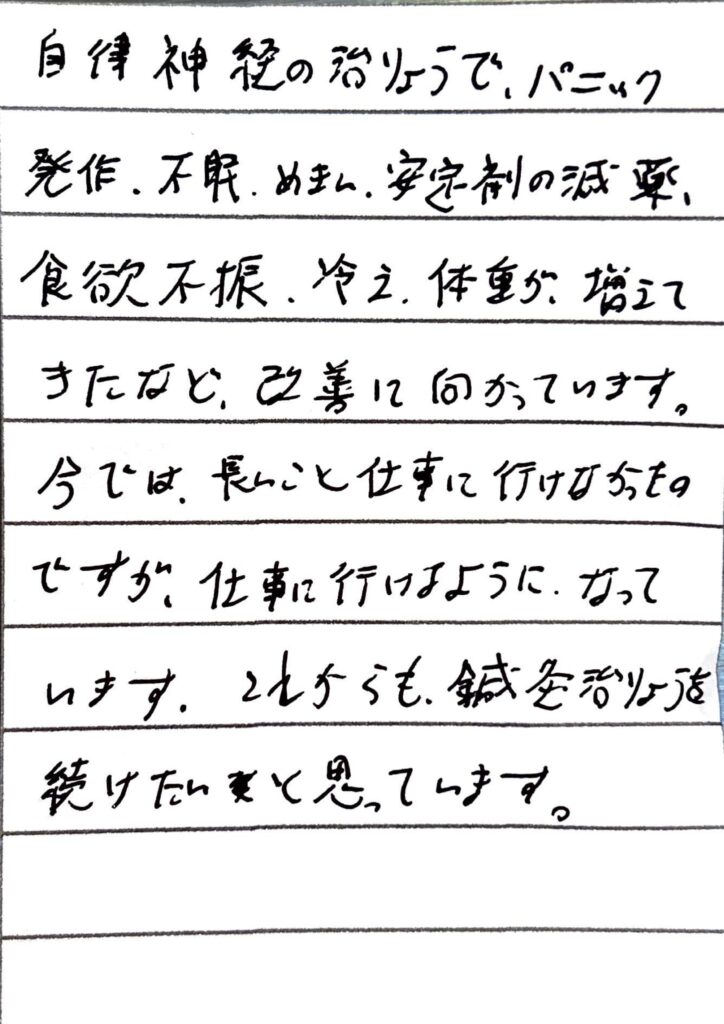 自律神経の治りょうで、パニック
発作、不眠、めまい、安定剤の減薬、
食欲不振、冷え、体重が、増えて
きたなど、改善に向かっています。
今では、長いこと仕事に行けなかったの
ですが、仕事に行けるように、なって
います。これからも、鍼灸治りょうを
続けたいと思っています。